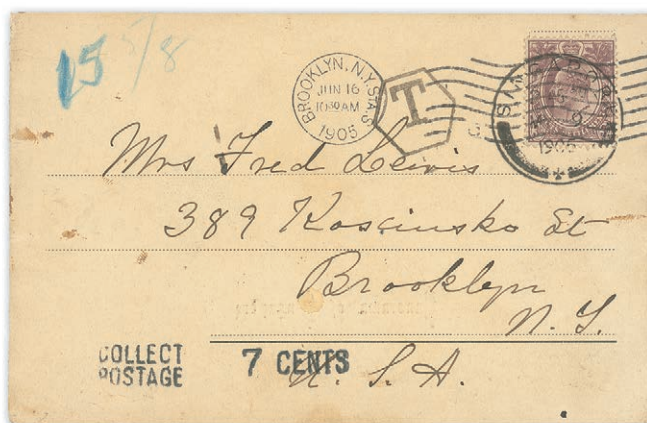 15 5/8
BROOKLYN, N.Y. STA. S
JUN 16
10 30 AM
1905
T
SINGAPORE
1905
Mrs Fred Lewis
389 Kosciusko St
Brooklyn
N. Y.
COLLECT
POSTAGE
7 CENTS
U. S. A.